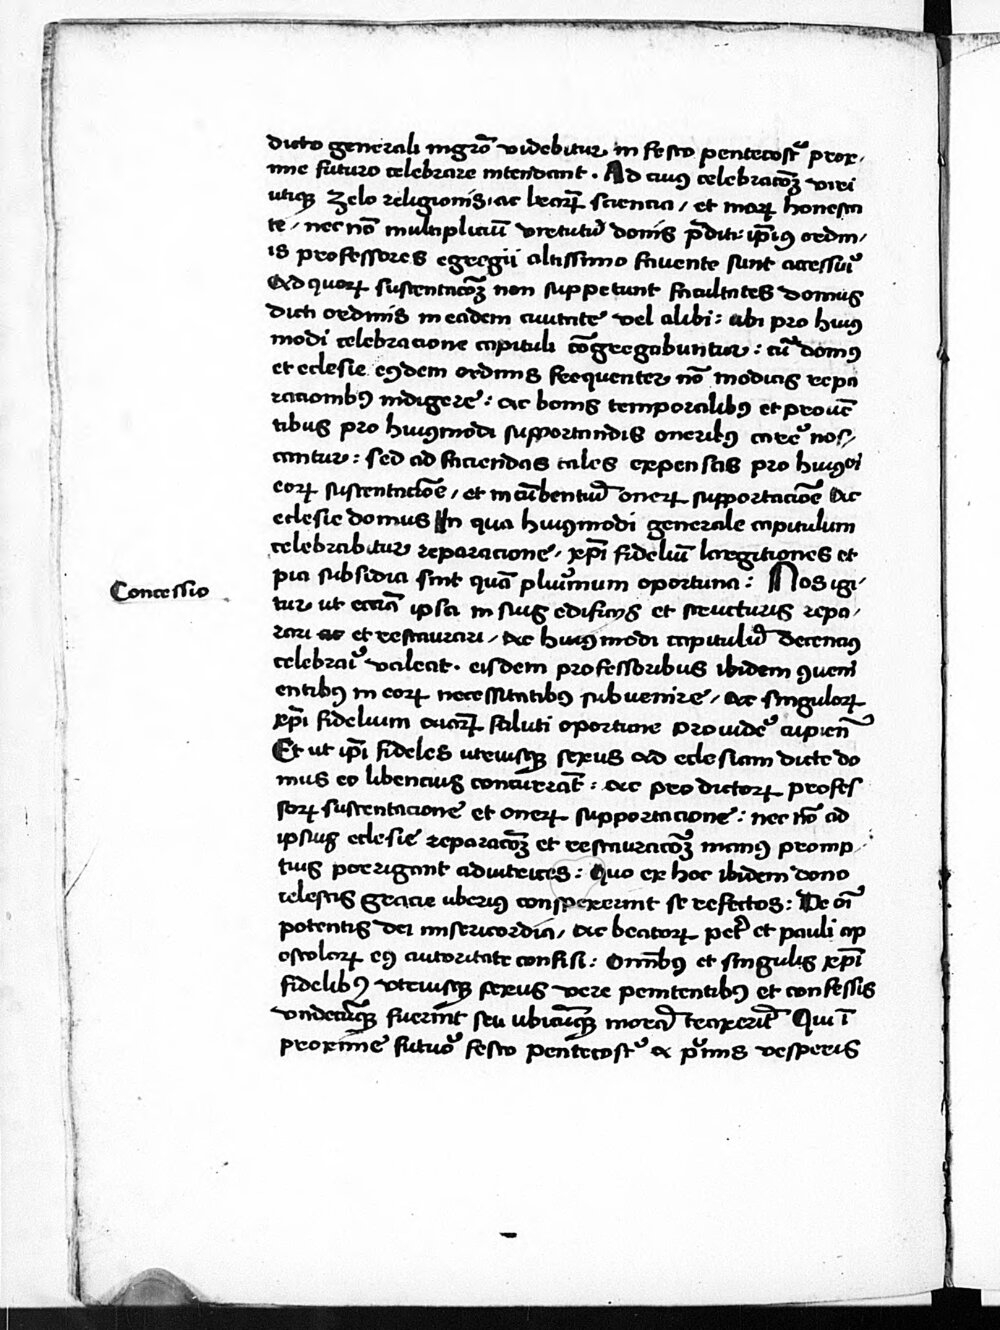 dicto generali mgrō videbitur in festo pentecost᾽ prox,
me futuro celebrare intendant . Ad cuiꝰ celebracōꝫ viri
utiqꝫ zelo religionis, ac lrarꝝ sciencia / et morꝝ honesta
te / nec nō multipliciū virtutū donis p̄diti: ip̄iꝰ ordin,
is professores egregii altissimo favente sunt accessuri
Ad quorꝝ sustentacōꝫ non suppetunt facultates domus
dicti ordinis in eadem civitate vel alibi: ubi pro huiꝰ
modi celebracione capituli cōgregabuntur: cū domꝰ
et eclesie eiꝰdem ordinis frequenter nō modicis repa
racionibꝰ indigere: ac bonis temporalibꝰ et provē
tibus pro huiꝰmodi supportandis oneribꝰ carē nos,
cantur: sed ad faciendas tales expensas pro huiꝰoi
eorꝝ sustentacōe, et incūbentiū onerꝝ supportaciōe Ac
eclesie domus In qua huiꝰmodi generale capitulum
celebrabitur reparacione, xp̄i fideliū largitiones et
pia subsidia sint quā plurimum oportuna: Nos igi,
Concessio
tur ut ecciā ipsa in suis edificiis et structuris repa,
rari ac et restaurari, Ac huiꝰmodi capitulū decenciꝰ
celebrari valeat. eisdem professoribus ibidem ꝯueni
entibꝰ in eorꝝ necessitatibꝰ subvenire, Ac singulorꝝ
xp̄i fidelium aīarꝝ saluti oportune providē cupien̄
Et ut ip̄i fideles utriusqꝫ sexus ad eclesiam dicte do
mus eo libencius concurrāt: ac pro dictorꝝ profes
sorꝝ sustentacione et onerꝝ supportacione: nec nō ad
ipsius eclesie reparacōꝫ et restauracōꝫ manꝰ promp
tius porrigant adiutrices: Quo ex hoc ibidem dono
celestis gracie uberiꝰ conspexerint se refectos: De oī
potentis dei misericordia, ac beatorꝝ petri et pauli ap
ostolorꝝ eiꝰ autoritate confisi: Omībꝰ et singulis xp̄i
fidelibꝰ utriusqꝫ sexus vere penitentibꝰ et confessis
undecūqꝫ fuerint seu ubicūqꝫ morā traxerīt Qui ī
proxime futuro festo pentecost᾽ a prīmis vesperis